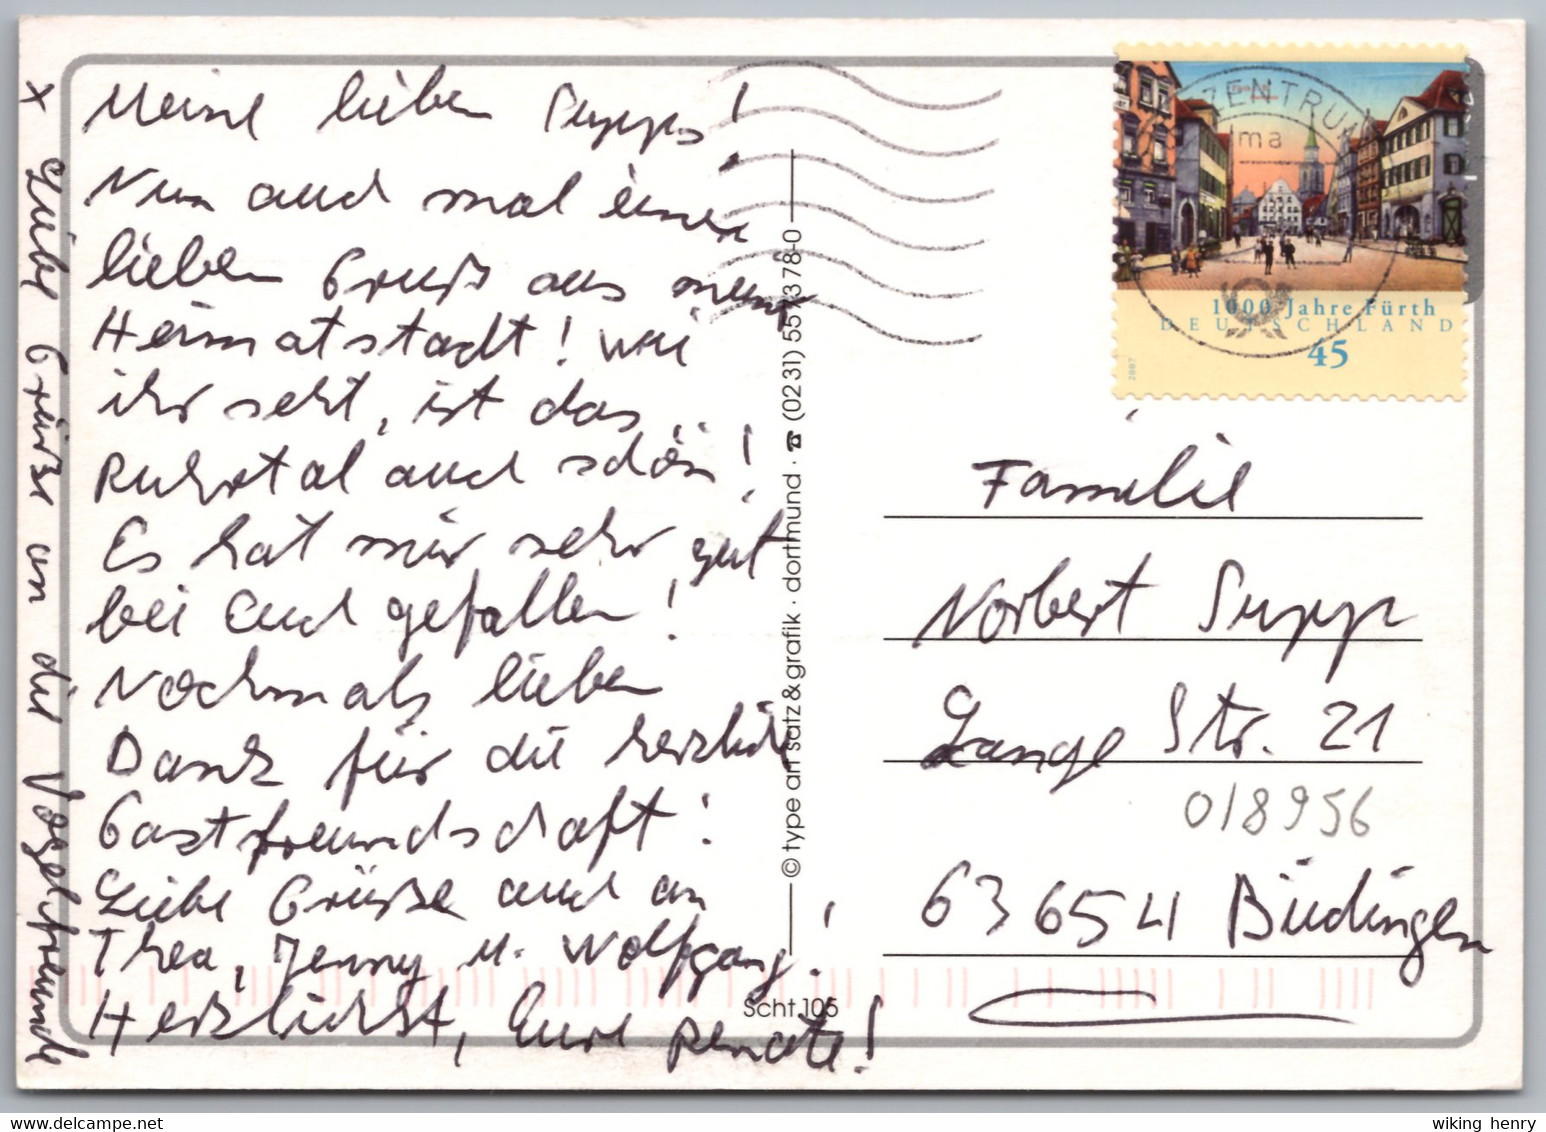 Meine lieben Supps!
Nun auch mal einen
lieben Gruß aus meiner
Heimatstadt! Wie
ihr seht, ist das
Ruhrtal auch schön!
Es hat mir sehr gut
bei Euch gefallen!
Nochmals lieben
Dank für die herzliche
Gastfreundschaft!
Liebe Grüße auch an
Thea, Jenny u. Wolfgang!
Herzlichst, Eure Renate!
x Liebe Grüße an die Vogelfreunde
© type art satz & grafik · dortmund · ☎ (0231) 557378-0
Scht 105
ZENTRUM
ma
1000 Jahre Fürth
DEUTSCHLAND
45
2007
Familie
Norbert Supp
Lange Str. 21
018956
63654 Büdingen
wiking henry